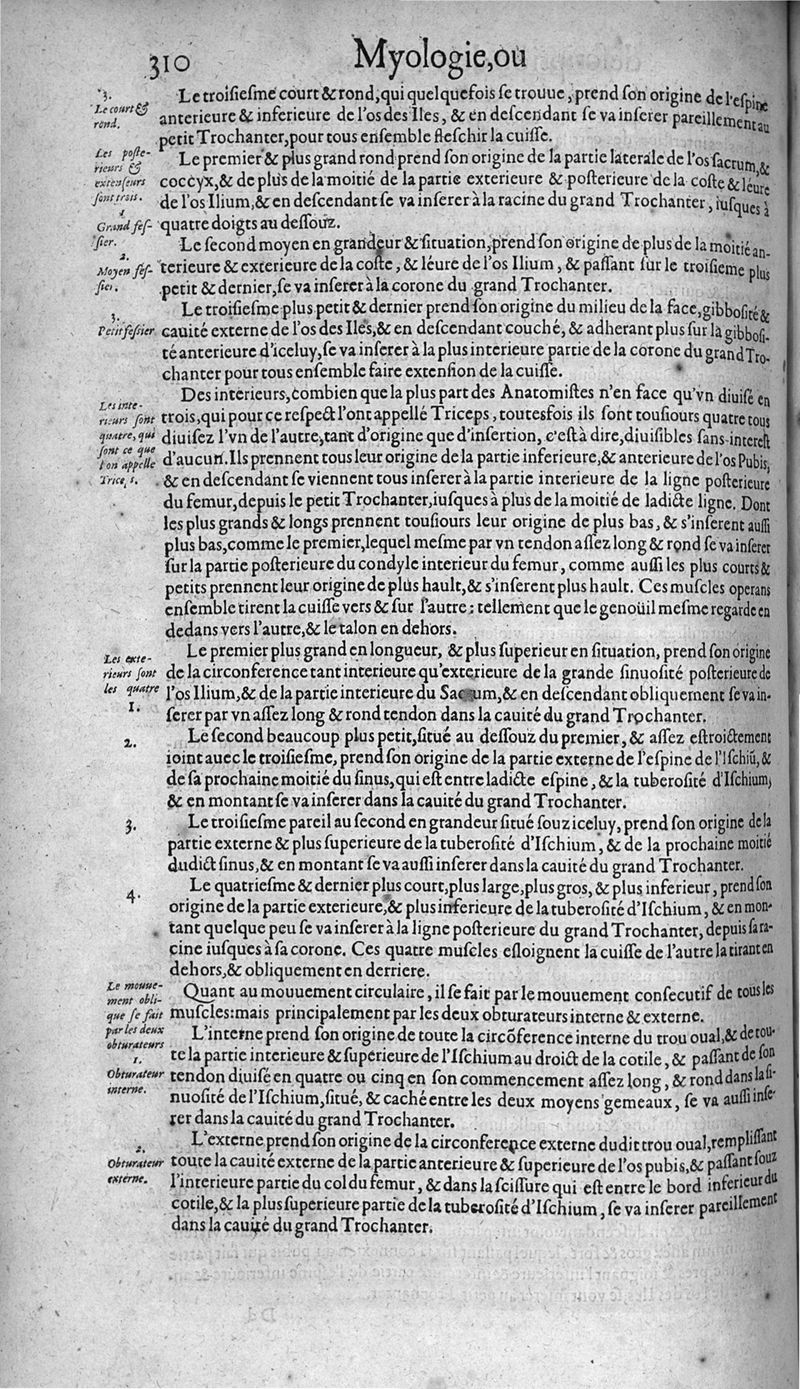 310 Myologie, ou
3.
Le court &
rond.
Le troisiesme court & rond, qui quelquefois se trouue, prend son origine de l'espine
anterieure & inferieure de l'os des Iles, & en descendant se va inserer pareillement au
petit Trochanter, pour tous ensemble fleschir la cuisse.
Les poste-
rieurs &
extenseurs
sont trois.
1
Grand fes-
sier.
Le premier & plus grand rond prend son origine de la partie laterale de l'os sacrum, &
coccyx, & de plus de la moitié de la partie exterieure & posterieure de la coste & léure
de l'os Ilium, & en descendant se va inserer à la racine du grand Trochanter, iusques à
quatre doigts au dessouz.
2.
Moyen fes-
sier.
Le second moyen en grandeur & situation, prend son origine de plus de la moitié an-
terieure & exterieure de la coste, & léure de l'os Ilium, & passant sur le troisieme plus
petit & dernier, se va inserer à la corone du grand Trochanter.
3.
Petit fessier
Le troisiesme plus petit & dernier prend son origine du milieu de la face, gibbosité &
cauité externe de l'os des Iles, & en descendant couché, & adherant plus sur la gibbosi-
té anterieure d'iceluy, se va inserer à la plus interieure partie de la corone du grand Tro-
chanter pour tous ensemble faire extension de la cuisse.
Les inte-
rieurs sont
quatre, qui
sont ce que
l'on appelle
Triceps.
Des interieurs, combien que la plus part des Anatomistes n'en face qu'vn diuisé en
trois, qui pour ce respect l'ont appellé Triceps, toutesfois ils sont tousiours quatre tous
diuisez l'vn de l'autre, tant d'origine que d'insertion, c'est à dire, diuisibles sans interest
d'aucun. Ils prennent tous leur origine de la partie inferieure, & anterieure de l'os Pubis,
& en descendant se viennent tous inserer à la partie interieure de la ligne posterieure
du femur, depuis le petit Trochanter, iusques à plus de la moitié de ladicte ligne. Dont
les plus grands & longs prennent tousiours leur origine de plus bas, & s'inserent aussi
plus bas, comme le premier, lequel mesme par vn tendon assez long & rond se va inserer
sur la partie posterieure du condyle interieur du femur, comme aussi les plus courts &
petits prennent leur origine de plus hault, & s'inserent plus hault. Ces muscles operans
ensemble tirent la cuisse vers & sur l'autre: tellement que le genoüil mesme regarde en
dedans vers l'autre, & le talon en dehors.
Les exte-
rieurs sont
les quatre
1.
Le premier plus grand en longueur, & plus superieur en situation, prend son origine
de la circonference tant interieure qu'exterieure de la grande sinuosité posterieure de
l'os Ilium, & de la partie interieure du Sacrum, & en descendant obliquement se va in-
serer par vn assez long & rond tendon dans la cauité du grand Trochanter.
2.
Le second beaucoup plus petit, situé au dessouz du premier, & assez estroictement
ioint auec le troisiesme, prend son origine de la partie externe de l'espine de l'Ischiũ, &
de sa prochaine moitié du sinus, qui est entre ladicte espine, & la tuberosité d'Ischium,
& en montant se va inserer dans la cauité du grand Trochanter.
3.
Le troisiesme pareil au second en grandeur situé souz iceluy, prend son origine de la
partie externe & plus superieure de la tuberosité d'Ischium, & de la prochaine moitié
dudict sinus, & en montant se va aussi inserer dans la cauité du grand Trochanter.
4.
Le quatriesme & dernier plus court, plus large, plus gros, & plus inferieur, prend son
origine de la partie exterieure, & plus inferieure de la tuberosité d'Ischium, & en mon-
tant quelque peu se va inserer à la ligne posterieure du grand Trochanter, depuis sa ra-
cine iusques à sa corone. Ces quatre muscles esloignent la cuisse de l'autre la tirant en
dehors, & obliquement en derriere.
Le mouue-
ment obli-
que se fait
par les deux
obturateurs
Quant au mouuement circulaire, il se fait par le mouuement consecutif de tous les
muscles: mais principalement par les deux obturateurs interne & externe.
1.
Obturateur
interne.
L'interne prend son origine de toute la circõference interne du trou oual, & de tou-
te la partie interieure & superieure de l'Ischium au droict de la cotile, & passant de son
tendon diuisé en quatre ou cinq en son commencement assez long, & rond dans la si-
nuosité de l'Ischium, situé, & caché entre les deux moyens gemeaux, se va aussi inse-
rer dans la cauité du grand Trochanter.
2.
Obturateur
externe.
L'externe prend son origine de la circonference externe dudit trou oual, remplissant
toute la cauité externe de la partie anterieure & superieure de l'os pubis, & passant souz
l'interieure partie du col du femur, & dans la scissure qui est entre le bord inferieur du
cotile, & la plus superieure partie de la tuberosité d'Ischium, se va inserer pareillement
dans la cauité du grand Trochanter.